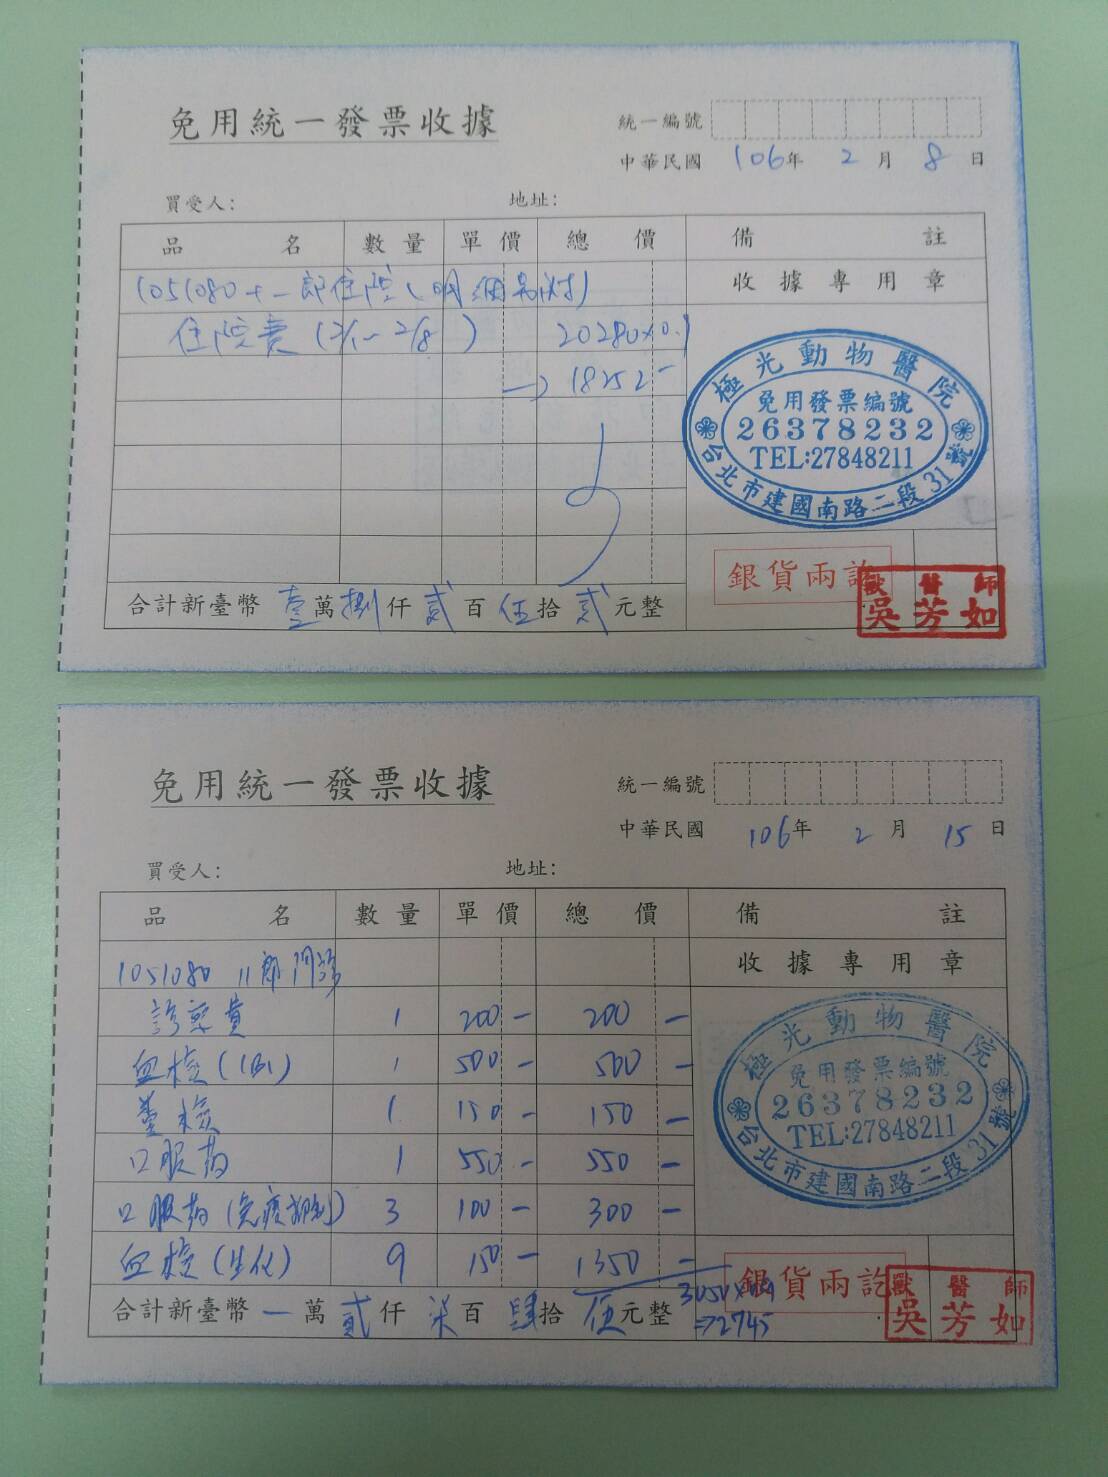 免用統一發票收據
統一編號
中華民國 106年 2月 8日
買受人: 地址:
品名 數量 單價 總價 備註
收據專用章
1051080 十一郎住院(明細另附)
住院費(2/1-2/8) 20280x0.9
→18252-
極光動物醫院
免用發票編號
26378232
TEL:27848211
台北市建國南路二段31號
銀貨兩訖
獸醫師
吳芳如
合計新臺幣 壹萬捌仟貳百伍拾貳元整
免用統一發票收據
統一編號
中華民國 106年 2月 15日
買受人: 地址:
品名 數量 單價 總價 備註
收據專用章
1051080 11郎門診
診察費 1 200- 200-
血檢(CBC) 1 500- 500-
1 150- 150-
口服葯 1 550- 550-
口服葯(免疫抑制) 3 100- 300-
血檢(生化) 9 150- 1350-
3050x0.9
⇒2745
極光動物醫院
免用發票編號
26378232
TEL:27848211
台北市建國南路二段31號
銀貨兩訖
獸醫師
吳芳如
合計新臺幣 一萬貳仟柒百肆拾伍元整